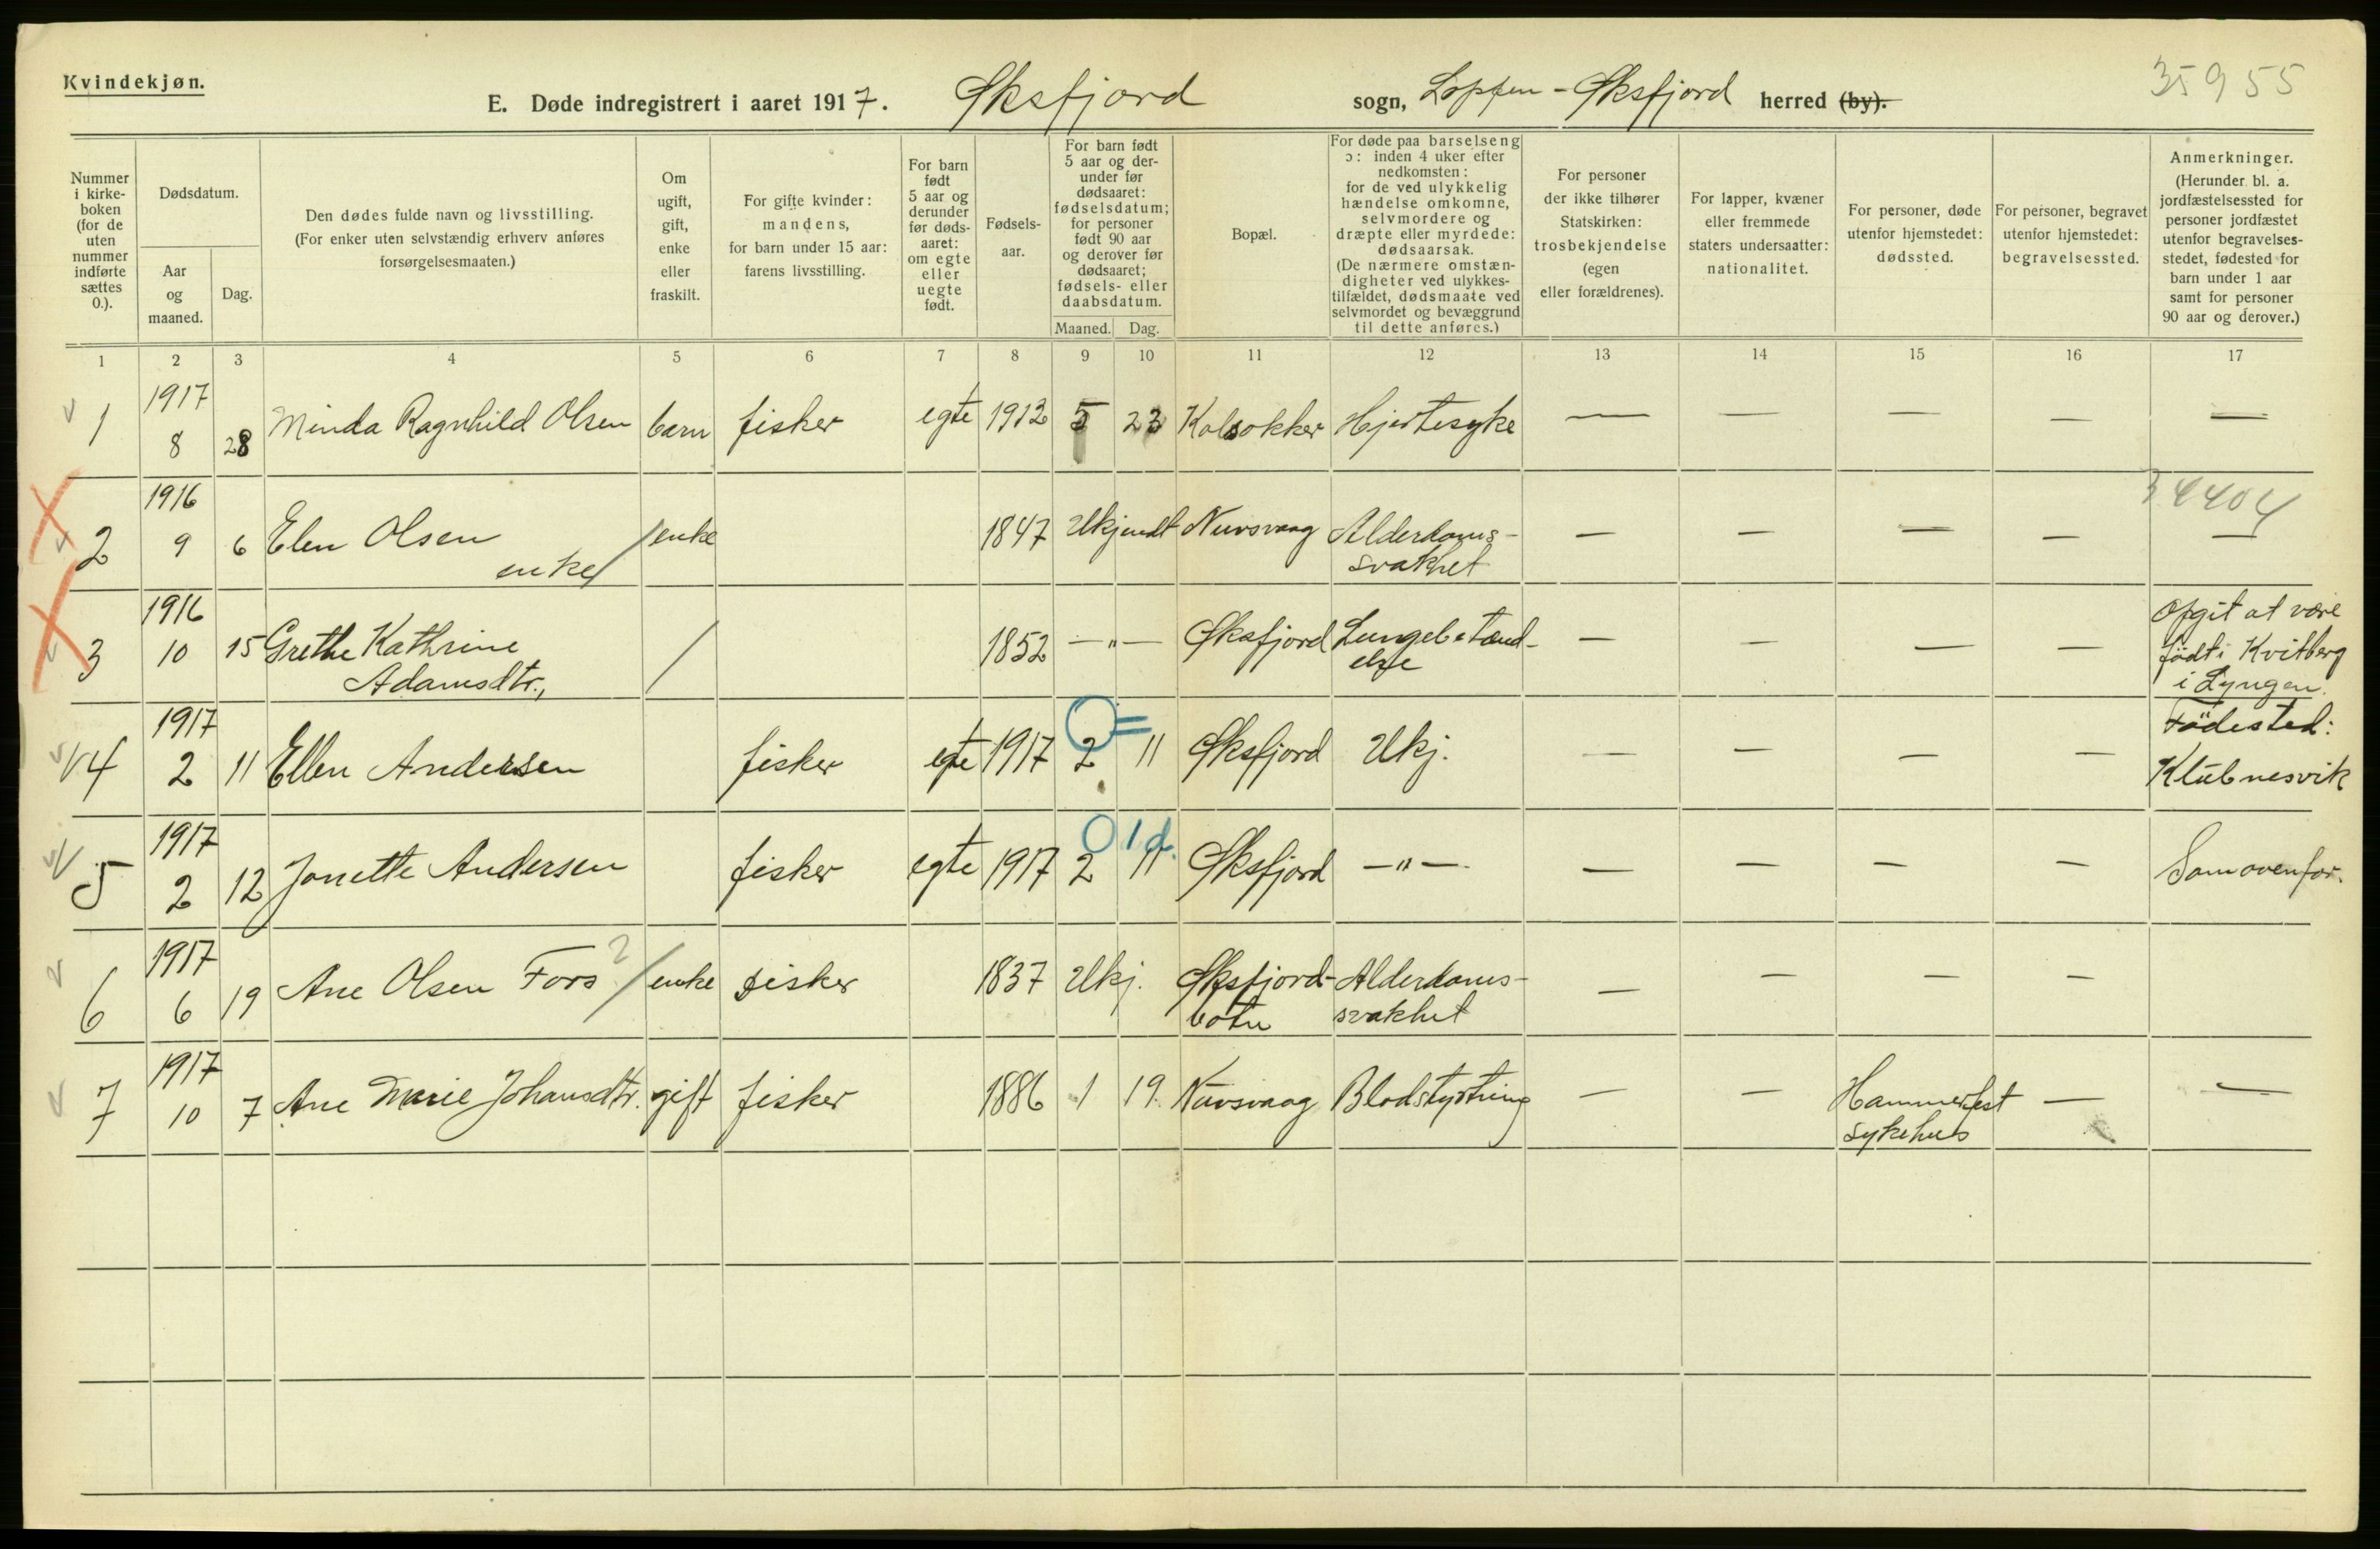 Kvindekjøn.
35955
E. Døde indregistrert i aaret 1917. Øksfjord sogn, Loppen - Øksfjord herred (by).
Nummer i kirke- boken (for de uten nummer indførte sættes 0.).
Dødsdatum.
Aar og maaned.
Dag.
Den dødes fulde navn og livsstilling.
(For enker uten selvstændig erhverv anføres
forsørgelsesmaaten.)
Om ugift, gift, enke eller fraskilt.
For gifte kvinder:
mandens,
for barn under 15 aar:
farens livsstilling.
For barn født 5 aar og derunder før døds- aaret: om egte eller uegte født.
Fødsels- aar.
For barn født 5 aar og der- under før dødsaaret: fødselsdatum; for personer født 90 aar og derover før dødsaaret; fødsels- eller daabsdatum.
Maaned. Dag.
Bopæl.
For døde paa barselseng
ɔ: inden 4 uker efter
nedkomsten:
for de ved ulykkelig
hændelse omkomne,
selvmordere og
dræpte eller myrdede:
dødsaarsak.
(De nærmere omstæn-
digheter ved ulykkes-
tilfældet, dødsmaate ved
selvmordet og bevæggrund
til dette anføres.)
For personer
der ikke tilhører
Statskirken:
trosbekjendelse
(egen
eller forældrenes).
For lapper, kvæner
eller fremmede
staters undersaatter:
nationalitet.
For personer, døde
utenfor hjemstedet:
dødssted.
For personer, begravet
utenfor hjemstedet:
begravelsessted.
Anmerkninger.
(Herunder bl. a.
jordfæstelsessted for
personer jordfæstet
utenfor begravelses-
stedet, fødested for
barn under 1 aar
samt for personer
90 aar og derover.)
1 2 3 4 5 6 7 8 9 10 11 12 13 14 15 16 17
1 1917 8 28 Minda Ragnhild Olsen barn fisker egte 1912 5 23 Kalsokker Hjertesyke — — — — —
34404
2 1916 9 6 Elen Olsen enke / enke 1847 Ukjendt Nuvsvaag Alderdoms- svakhet — — — — —
3 1916 10 15 Grethe Kathrine Adamsdtr., / 1852 —"— Øksfjord Lungebetænd- else — — — — Opgit at være født i Kvitberg i Lyngen.
4 1917 2 11 Ellen Andersen fisker egte 1917 2 11 Øksfjord Ukj. — — — — Födested: Klubnesvik
0 =
5 1917 2 12 Jonette Andersen fisker egte 1917 2 11 Øksfjord —"—. — — — — Som ovenfor.
0 1 d.
6 1917 6 19 Ane Olsen Fors ? / enke fisker 1837 Ukj. Øksfjord- botn Alderdoms- svakhet — — — —
7 1917 10 7 Ane Marie Johansdtr. gift fisker 1886 1 19. Nuvsvaag Blodstyrtning — — Hammerfest sykehus — —